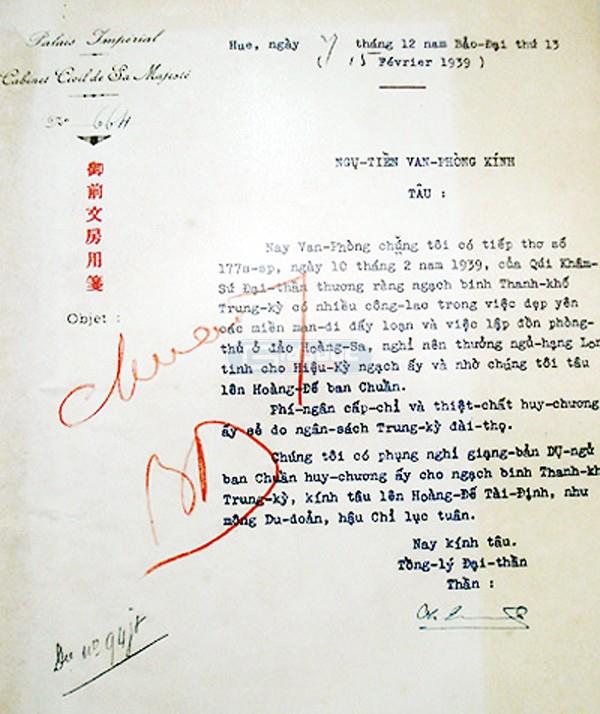 Palais Impérial
Cabinet Civil de Sa Majesté
No 66H
御前文房用箋
Objet :
Hue, ngày 27 tháng 12 nam Bảo-Đại thứ 13
15 Février 1939 )
NGỰ-TIỀN VAN-PHÒNG KÍNH
TÂU :
Nay Van-Phòng chúng tôi có tiếp thơ số
177s-sp, ngày 10 tháng 2 nam 1939, của Quí Khâm-
Sứ Đại-thần thương rằng ngạch binh Thanh-khố
Trung-kỳ có nhiều công-lao trong việc dẹp yên
các miền man-di dấy loạn và việc lập đồn phòng-
thủ ở đảo Hoàng-Sa, nghỉ nên thưởng ngủ-hạng Lon
tinh cho Hiệu-Kỳ ngạch ấy và nhờ chúng tôi tâu
lên Hoàng-Đế ban Chuẩn.
Phí-ngân cấp-chỉ và thiệt-chất huy-chương
ấy sẻ do ngân-sách Trung-kỳ đài-thọ.
Chúng tôi có phụng nghỉ giạng-bản DỤ-ngử
ban Chuẩn huy-chương ấy cho ngạch binh Thanh-kh
Trung-kỳ, kính tâu lên Hoàng-Đế Tài-Định, như
mông Du-doản, hậu Chỉ lục tuân.
Nay kính tâu.
Tổng-lý Đại-thần
Thần :
Chuẩn
BĐ
Du nº 94